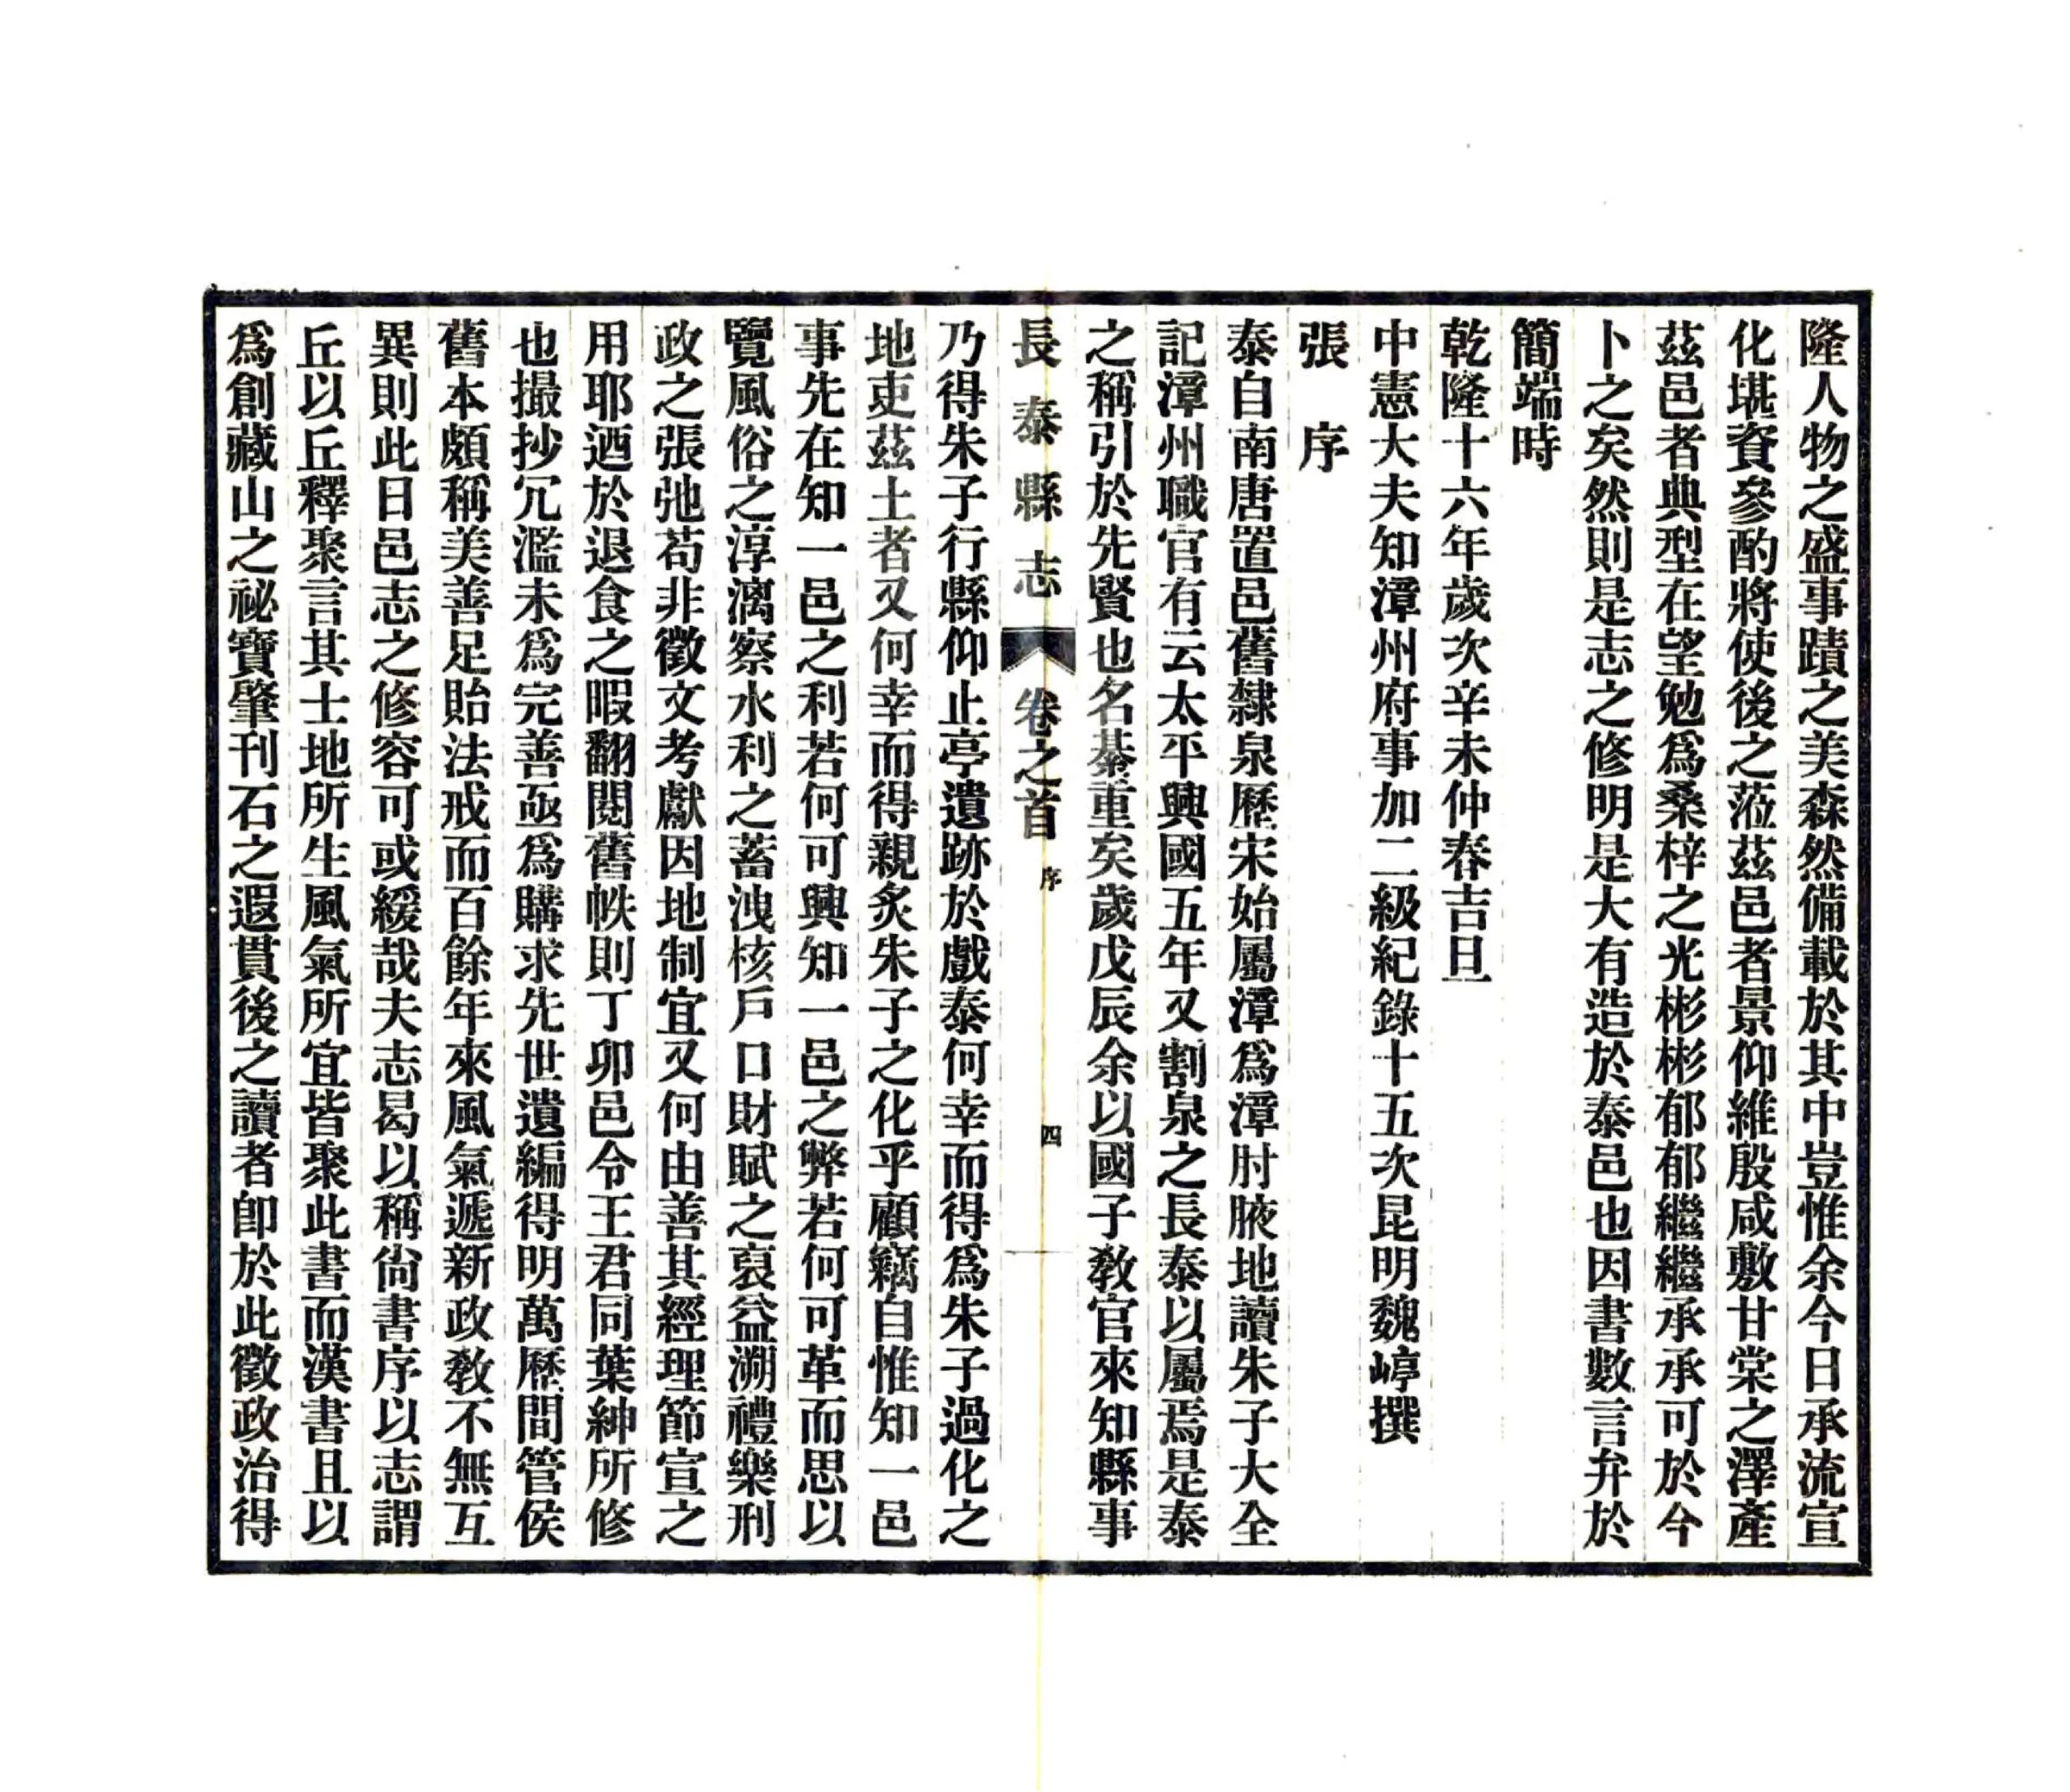 隆人物之盛事蹟之美森然備載於其中豈惟余今日承流宣
化堪資參酌將使後之蒞茲邑者景仰維殷咸敷甘棠之澤產
茲邑者典型在望勉爲桑梓之光彬彬郁郁繼繼承承可於今
卜之矣然則是志之修明是大有造於泰邑也因書數言弁於
簡端時
乾隆十六年歲次辛未仲春吉旦
中憲大夫知漳州府事加二級紀錄十五次昆明魏㟭撰
張序
泰自南唐置邑舊隸泉歷宋始屬漳爲漳肘腋地讀朱子大全
記漳州職官有云太平興國五年又割泉之長泰以屬焉是泰
之稱引於先賢也名綦重矣歲戊辰余以國子教官來知縣事
長泰縣志 卷之首 序 四
乃得朱子行縣仰止亭遺跡於戲泰何幸而得爲朱子過化之
地吏茲土者又何幸而得親炙朱子之化乎顧竊自惟知一邑
事先在知一邑之利若何可興知一邑之弊若何可革而思以
覽風俗之淳漓察水利之蓄洩核戶口財賦之裒益溯禮樂刑
政之張弛苟非徵文考獻因地制宜又何由善其經理節宣之
用耶迺於退食之暇翻閱舊帙則丁卯邑令王君同葉紳所修
也撮抄冗濫未爲完善亟爲購求先世遺編得明萬歷間管侯
舊本頗稱美善足貽法戒而百餘年來風氣遞新政教不無互
異則此日邑志之修容可或緩哉夫志曷以稱尙書序以志謂
丘以丘釋聚言其土地所生風氣所宜皆聚此書而漢書且以
爲創藏山之祕寶肇刊石之遐貫後之讀者卽於此徵政治得